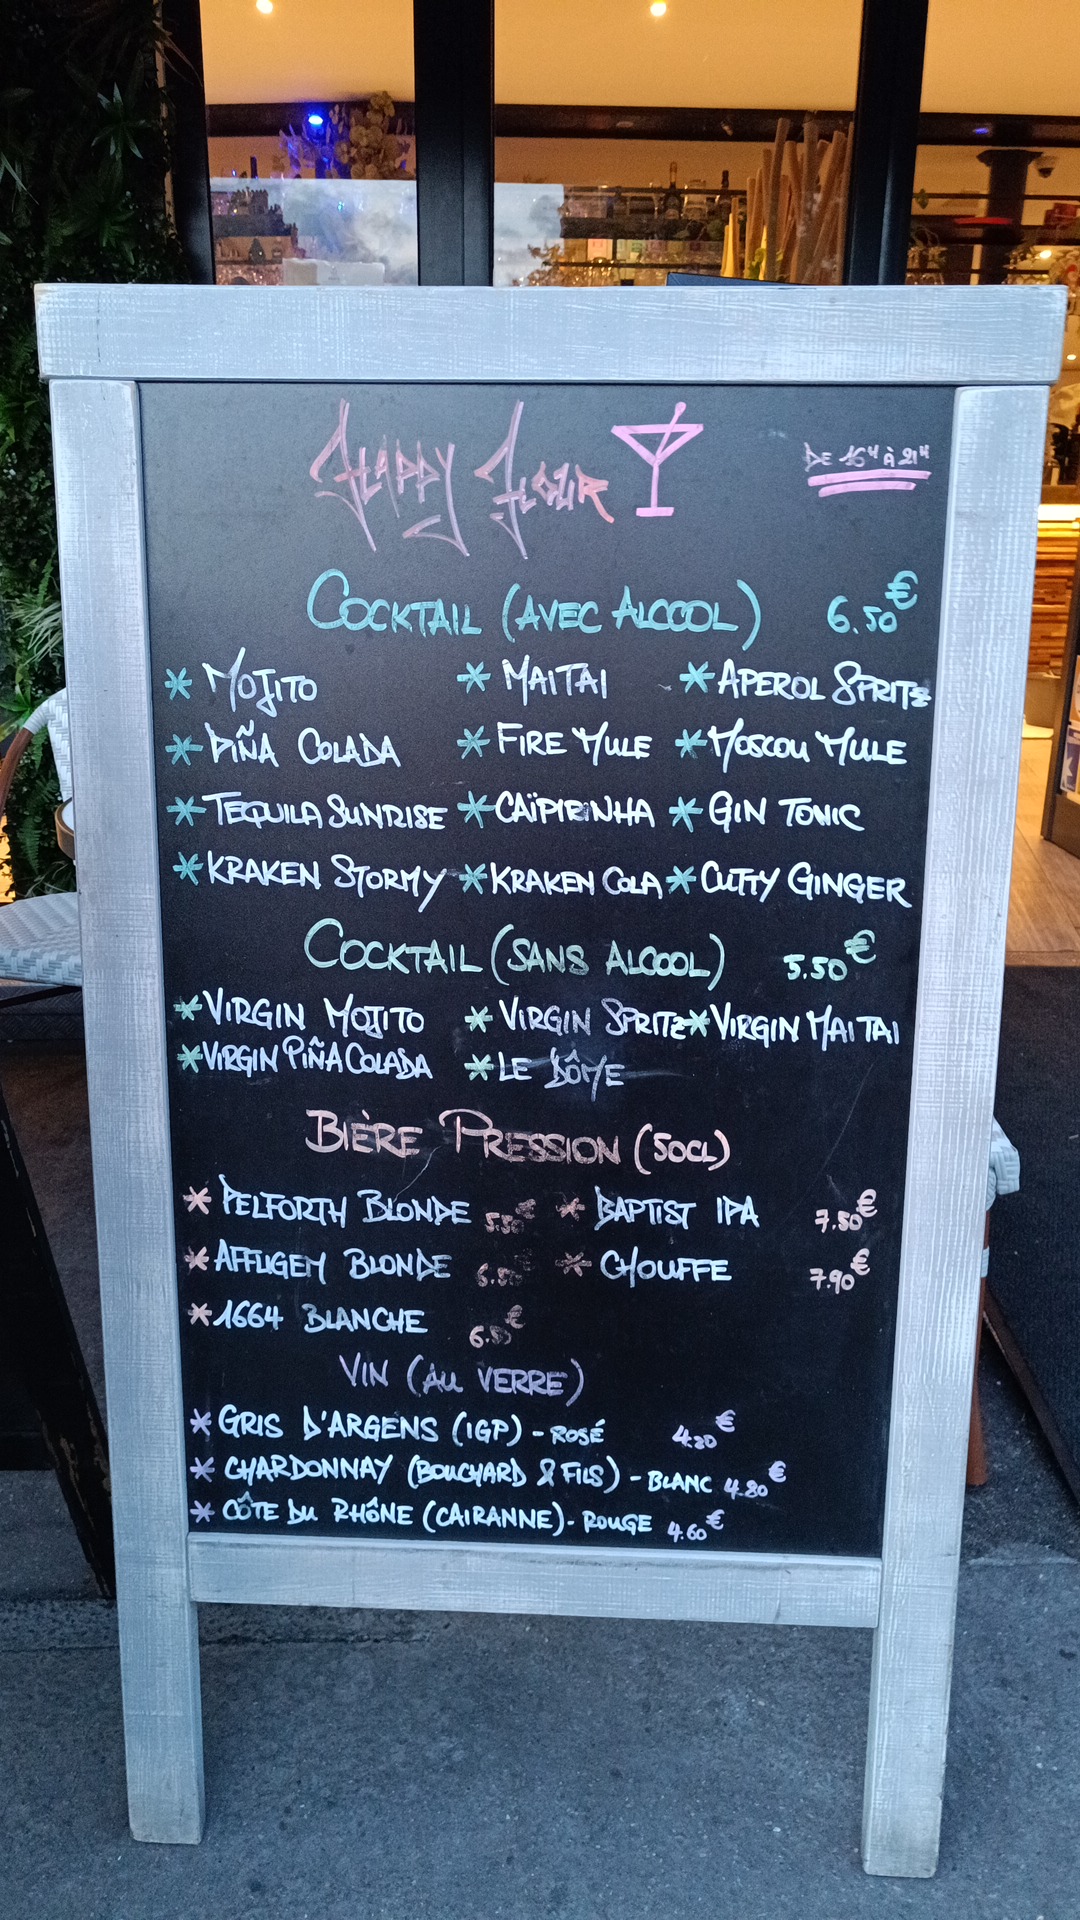 HAPPY HOUR
DE 16H À 21H
COCKTAIL (AVEC ALCOOL) 6.50€
* MOJITO * MAITAI * APEROL SPRITZ
* PIÑA COLADA * FIRE MULE * MOSCOU MULE
* TEQUILA SUNRISE * CAÏPIRINHA * GIN TONIC
* KRAKEN STORMY * KRAKEN COLA * CUTTY GINGER
COCKTAIL (SANS ALCOOL) 5.50€
* VIRGIN MOJITO * VIRGIN SPRITZ * VIRGIN MAI TAI
* VIRGIN PIÑA COLADA * LE DÔME
BIÈRE PRESSION (50CL)
* PELFORTH BLONDE 5.50€ * BAPTIST IPA 7.50€
* AFFLIGEM BLONDE 6.50€ * CHOUFFE 7.90€
* 1664 BLANCHE 6.50€
VIN (AU VERRE)
* GRIS D'ARGENS (IGP) - ROSÉ 4.20€
* CHARDONNAY (BOUCHARD & FILS) - BLANC 4.80€
* CÔTE DU RHÔNE (CAIRANNE) - ROUGE 4.60€